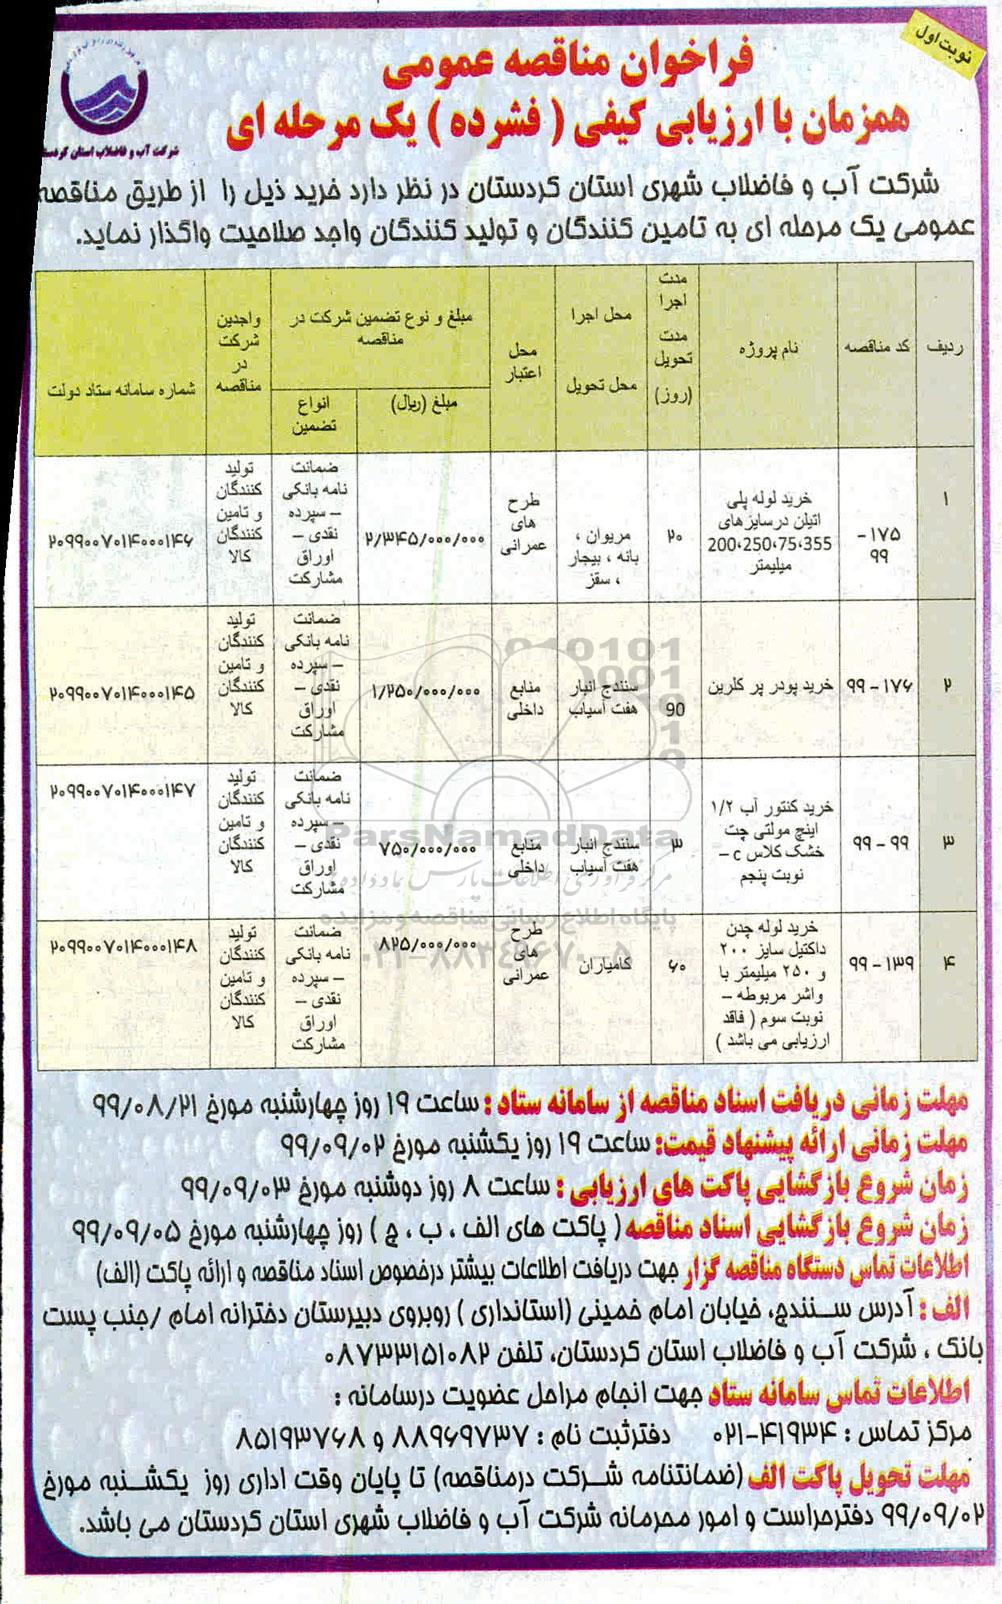 نوبت اول
فراخوان مناقصه عمومی
همزمان با ارزیابی کیفی ( فشرده ) یک مرحله ای
شرکت آب و فاضلاب استان کردستا
شرکت آب و فاضلاب شهری استان کردستان در نظر دارد خرید ذیل را از طریق مناقصه
عمومی یک مرحله ای به تامین کنندگان و تولید کنندگان واجد صلاحیت واگذار نماید.
ردیف
کد مناقصه
نام پروژه
مدت
اجرا
مدت
تحویل
(روز)
محل اجرا
محل تحویل
محل
اعتبار
مبلغ و نوع تضمین شرکت در
مناقصه
مبلغ (ریال)
انواع
تضمین
واجدین
شرکت
در
مناقصه
شماره سامانه ستاد دولت
۱
۱۷۵ -
۹۹
خرید لوله پلی
اتیلن درسایزهای
200،250،75،355
میلیمتر
۲۰
مریوان ،
بانه ، بیجار
، سقز
طرح
های
عمرانی
۲/۳۴۵/۰۰۰/۰۰۰
ضمانت
نامه بانکی
– سپرده
نقدی –
اوراق
مشارکت
تولید
کنندگان
و تامین
کنندگان
کالا
۲۰۹۹۰۰۷۰۱۴۰۰۰۱۴۶
۲
۱۷۶ - ۹۹
خرید پودر پر کلرین
90
سنندج انبار
هفت آسیاب
منابع
داخلی
۱/۲۵۰/۰۰۰/۰۰۰
ضمانت
نامه بانکی
– سپرده
نقدی –
اوراق
مشارکت
تولید
کنندگان
و تامین
کنندگان
کالا
۲۰۹۹۰۰۷۰۱۴۰۰۰۱۴۵
۳
۹۹ - ۹۹
خرید کنتور آب ۱/۲
اینچ مولتی جت
خشک کلاس c –
نوبت پنجم
۳
سنندج انبار
هفت آسیاب
منابع
داخلی
۷۵۰/۰۰۰/۰۰۰
ضمانت
نامه بانکی
– سپرده
نقدی –
اوراق
مشارکت
تولید
کنندگان
و تامین
کنندگان
کالا
۲۰۹۹۰۰۷۰۱۴۰۰۰۱۴۷
۴
۱۳۹ - ۹۹
خرید لوله چدن
داکتیل سایز ۲۰۰
و ۲۵۰ میلیمتر با
واشر مربوطه –
نوبت سوم ( فاقد
ارزیابی می باشد )
۶۰
کامیاران
طرح
های
عمرانی
۸۲۵/۰۰۰/۰۰۰
ضمانت
نامه بانکی
– سپرده
نقدی –
اوراق
مشارکت
تولید
کنندگان
و تامین
کنندگان
کالا
۲۰۹۹۰۰۷۰۱۴۰۰۰۱۴۸
ParsNamadData
مرکز فرآوری اطلاعات پارس نماد داده
پایگاه اطلاع رسانی مناقصه و مزایده
مهلت زمانی دریافت اسناد مناقصه از سامانه ستاد : ساعت ۱۹ روز چهارشنبه مورخ ۹۹/۰۸/۲۱
مهلت زمانی ارائه پیشنهاد قیمت: ساعت ۱۹ روز یکشنبه مورخ ۹۹/۰۹/۰۲
زمان شروع بازگشایی پاکت های ارزیابی : ساعت ۸ روز دوشنبه مورخ ۹۹/۰۹/۰۳
زمان شروع بازگشایی اسناد مناقصه ( پاکت های الف ، ب ، ج ) روز چهارشنبه مورخ ۹۹/۰۹/۰۵
اطلاعات تماس دستگاه مناقصه گزار جهت دریافت اطلاعات بیشتر درخصوص اسناد مناقصه و ارائه پاکت (الف)
الف : آدرس سنندج، خیابان امام خمینی (استانداری ) روبروی دبیرستان دخترانه امام /جنب پست
بانک ، شرکت آب و فاضلاب استان کردستان، تلفن ۰۸۷۳۳۱۵۱۰۸۲
اطلاعات تماس سامانه ستاد جهت انجام مراحل عضویت درسامانه :
مرکز تماس : ۴۱۹۳۴-۰۲۱ دفترثبت نام : ۸۸۹۶۹۷۳۷ و ۸۵۱۹۳۷۶۸
مهلت تحویل پاکت الف (ضمانتنامه شرکت درمناقصه) تا پایان وقت اداری روز یکشنبه مورخ
۹۹/۰۹/۰۲ دفترحراست و امور محرمانه شرکت آب و فاضلاب شهری استان کردستان می باشد.